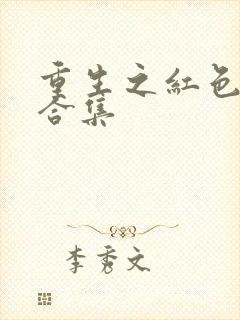 重生之红色
合集
李秀文